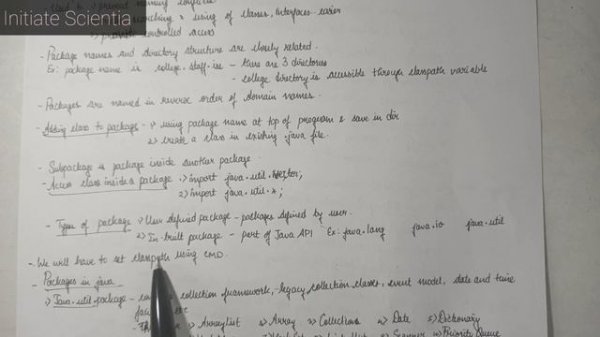 Initiate Scientia
used to prevent naming conflicts
searching & using of classes, interfaces easier
provide controlled access
- Package names and directory structure are closely related.
Ex: package name is college.staff.cse - there are 3 directories
- college directory is accessible through classpath variable
- Packages are named in reverse order of domain names.
- Adding class to package - 1) using package name at top of program & save in dir
2) create a class in existing .java file.
- Subpackage is package inside another package.
- Access class inside a package - 1) import java.util.Vector;
2) import java.util.*;
- Types of package 1) User defined package - packages defined by user.
2) In-built package - part of Java API Ex: java.lang java.io java.util
- We will have to set classpath using CMD.
- Packages in java
1) Java.util package - collection framework, legacy collection classes, event model, date and time
1) ArrayList 2) Array 3) Collections 4) Date 5) Dictionary
Scanner Priority Queue